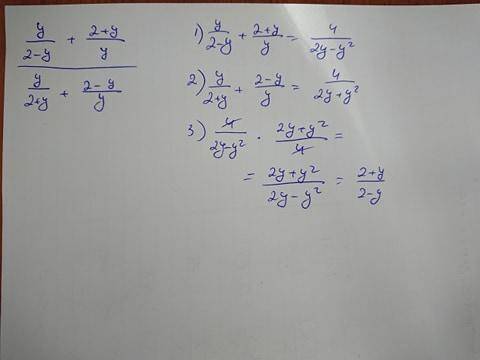 y/(2-y) + (2+y)/y
y/(2+y) + (2-y)/y
1) y/(2-y) + (2+y)/y = 4/(2y-y²)
2) y/(2+y) + (2-y)/y = 4/(2y+y²)
3) 4/(2y-y²) · (2y+y²)/4 =
= (2y+y²)/(2y-y²) = (2+y)/(2-y)